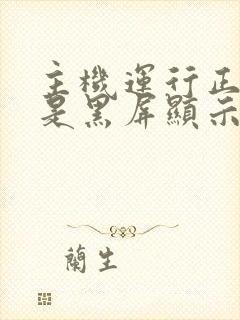 主機運行正
是黑屏顯示
蘭生